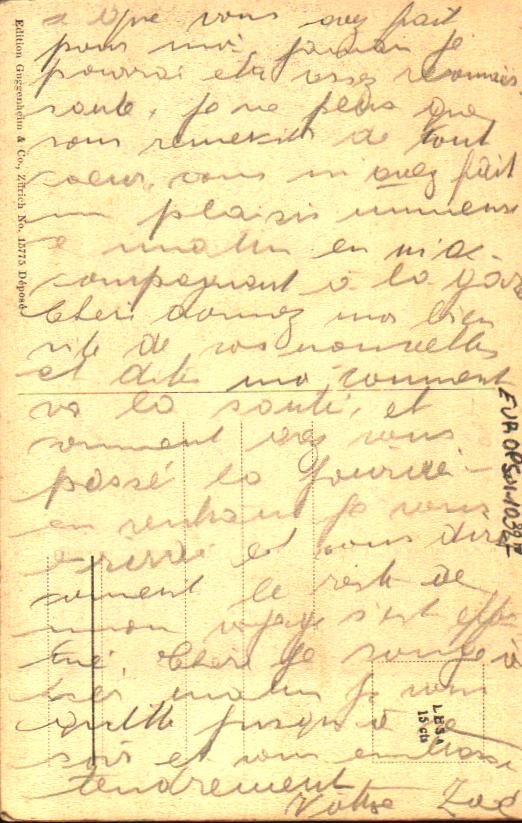 ce que vous avez fait
pour moi, jamais je
pourrai etre assez reconnais-
sante, je ne peus que
vous remercier de tout
coeur, vous m'avez fait
un plaisir immense
ce matin en m'ac-
compagnant à la gare
Cheri donnez moi bien
vite de vos nouvelles
et dites moi comment
va la santé, et
comment avez vous
passé la journée
en rentrant je vous
ecrirai et vous dire
comment le reste de
mon voyage s'est effec-
tué. Cheri je songe à
matin je vous
quitte jusqu'à ce
soir et vous embrasse
tendrement
Votre Zoé
Edition Guggenheim & Co., Zürich No. 15775 Déposé
EUROPSUI-1039
LESA
15 cts